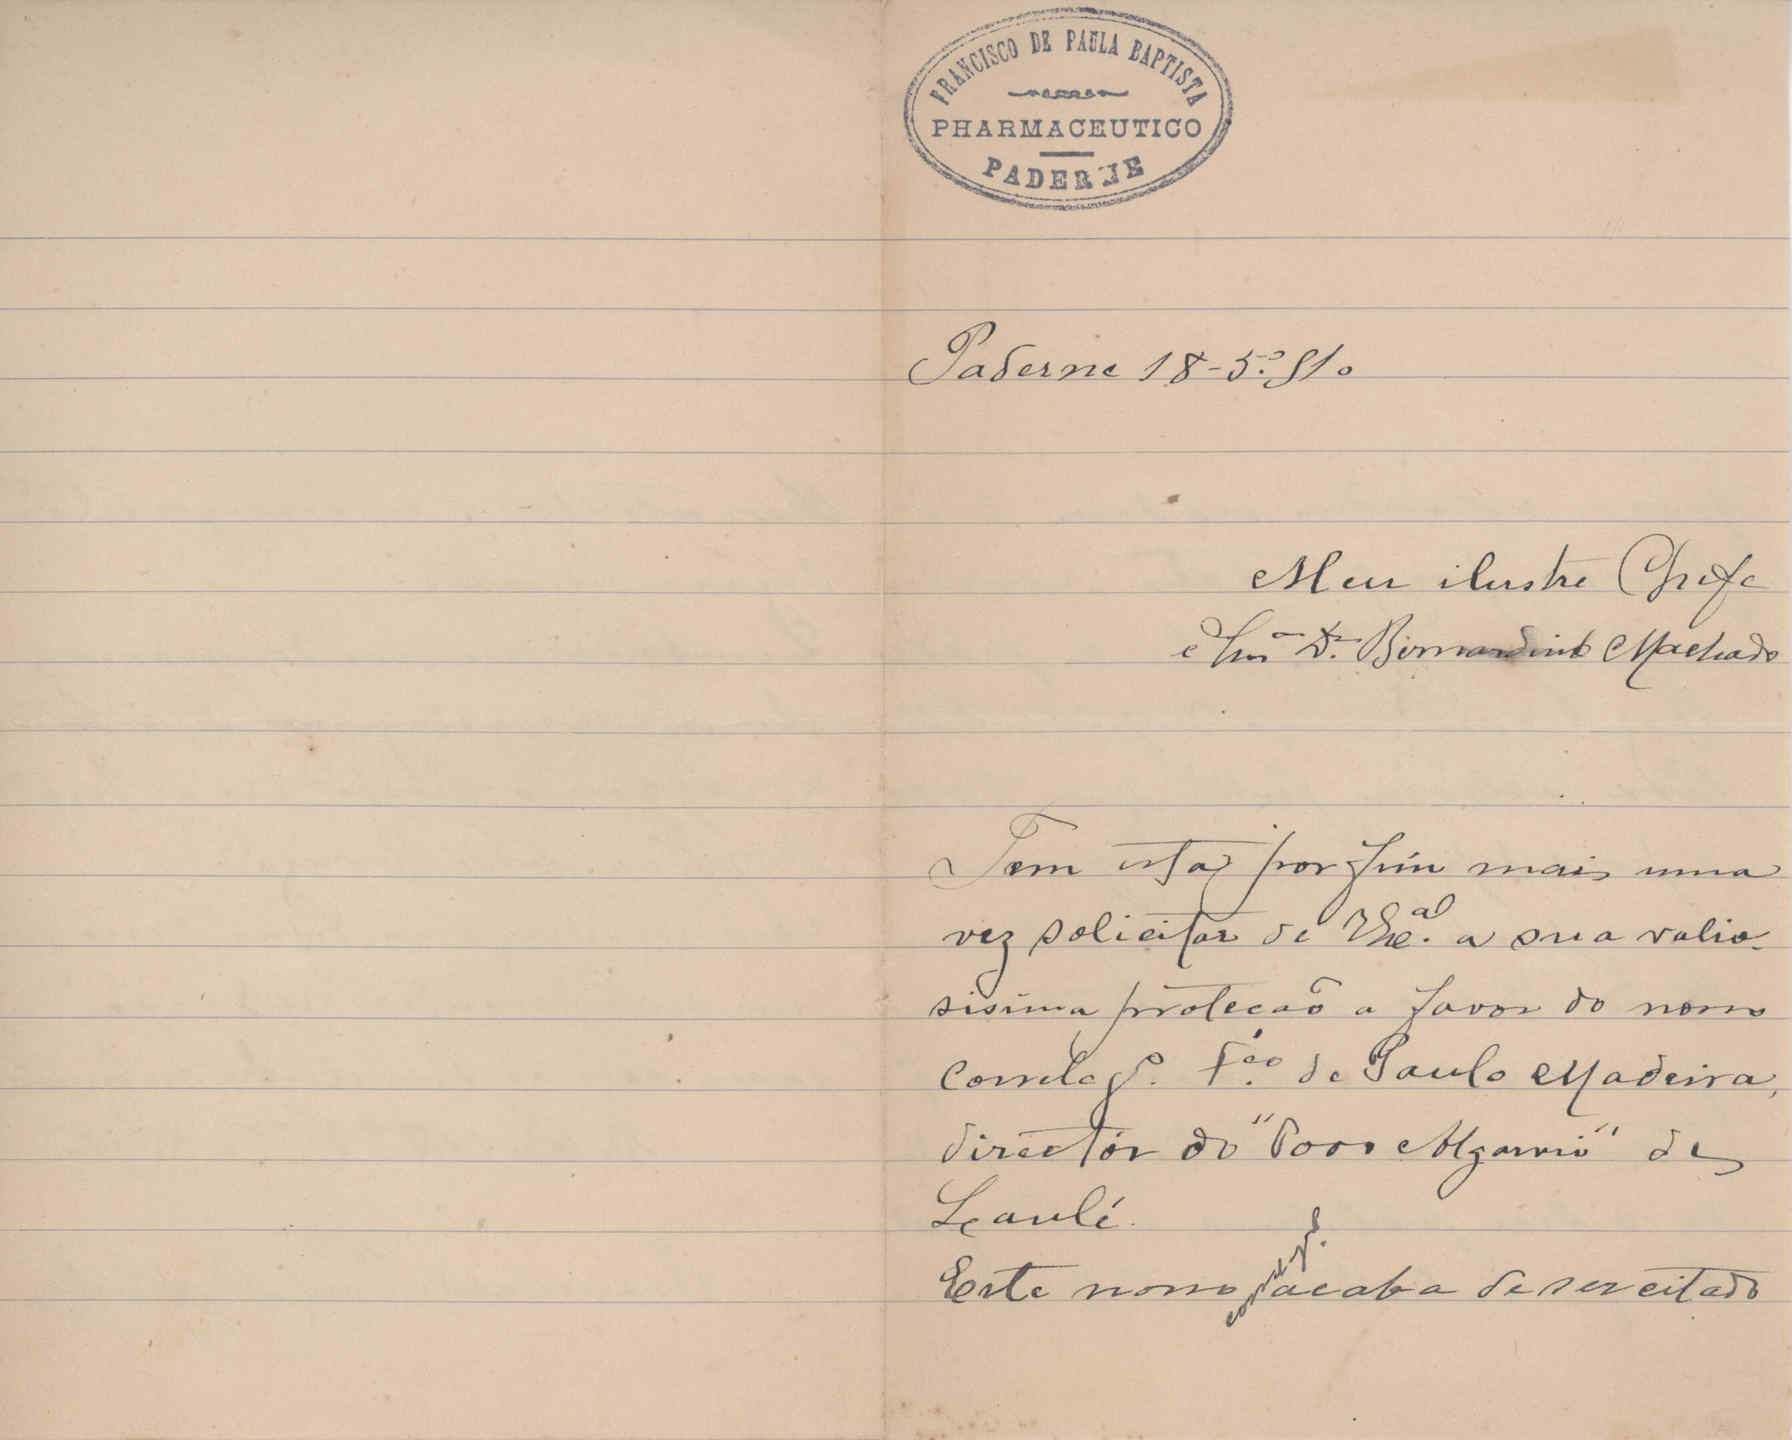 FRANCISCO DE PAULA BAPTISTA
PHARMACEUTICO
PADERNE
Paderne 18-5º-910
Meu ilustre Chefe
e Snr. Dr. Bernardino Machado
Tem esta por fim mais uma
vez solicitar de V. Exª. a sua valio-
sisima proteção a favor do nosso
correlegº. Fco. de Paulo Madeira,
director do "Povo Algarvio" de
Loulé.
Este nosso correlegº. acaba de ser citado